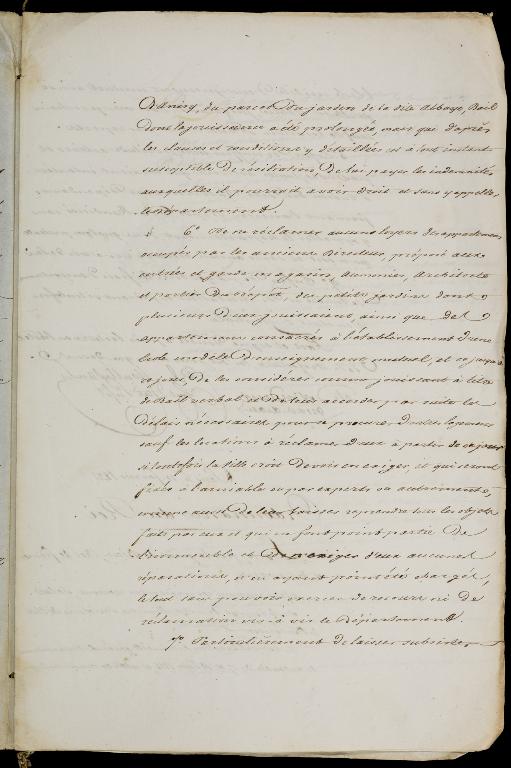 du parc et du jardin de la dite Abbaye, Bail
dont la jouissance a été prolongée, mais qui d'après
les clauses et conditions y détaillées est à tout instant
susceptible de résiliation, de lui payer les indemnités
auxquelles il pourrait avoir droit et sans y appeller
le département.
6.º De ne réclamer aucuns loyers des appartemens
occupés par les anciens Directeur, préposé aux
entrées et garde magasin, aumonier, Architecte
et portier du dépôt, des petits jardins dont
plusieurs d'eux jouissaient, ainsi que del
appartemens consacrés à l'établissement d'une
école modèle d'enseignement mutuel, et ce jusqu'à
ce jour, De les considérer comme jouissant à titre
de Bail verbal et de leur accorder par suite les
délais nécessaires pour se procurer d'autres logemens
sauf les locations à réclamer d'eux à partir de ce jour
si toutefois la ville croit devoir en exiger, et qui seront
fixés à l'amiable ou par experts ou autrement,
comme aussi de leur laisser reprendre tous les objets
faits par eux et qui ne font point partie de
l'immeuble et de n'exiger d'eux aucunes
réparations, n'en ayant point été chargés,
le tout sans pouvoir exercer de recours ni de
réclamation vis à vis le Département.
7.º Particulièrement de laisser subsister